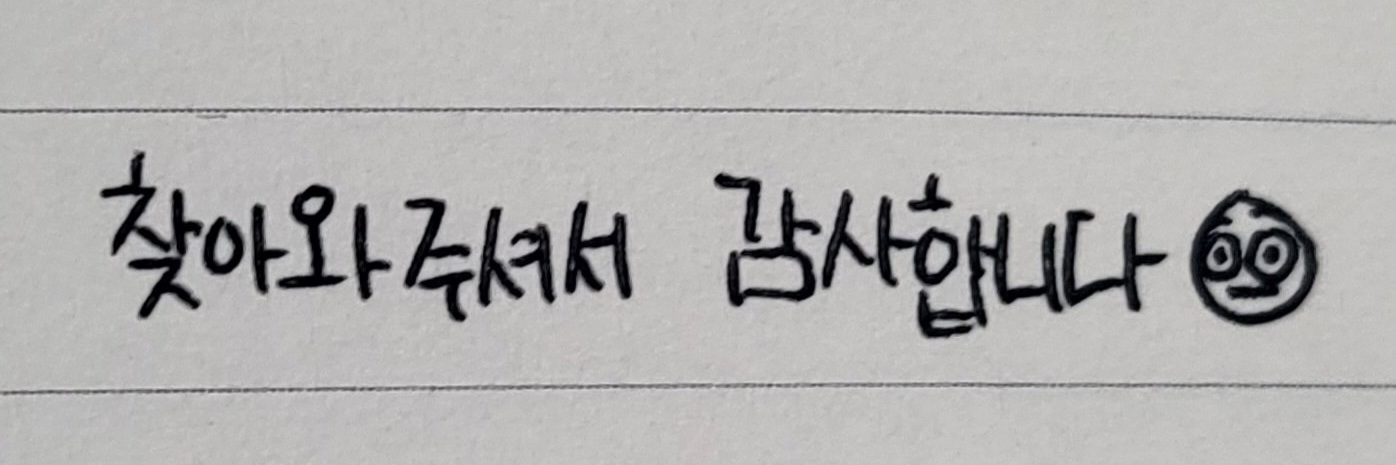 찾아와주셔서 감사합니다